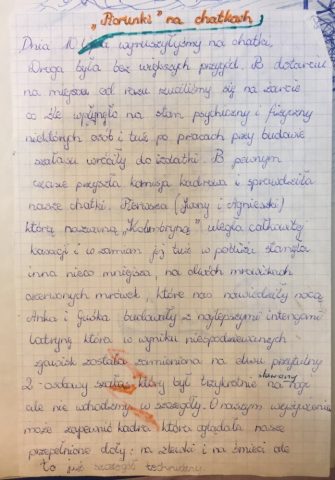 „Piorunki” na chatkach
Dnia 10 wyruszyłyśmy na chatki,
Droga była bez większych przygód. Po dotarciu
na miejsce od razu rzuciliśmy się na żarcie
co źle wpłynęło na stan psychiczny i fizyczny
niektórych osób i tuż po pracach przy budowie
szałasu wróciły do izolatki. W pewnym
czasie przyszła komisja kadrowa i sprawdziła
nasze chatki. Pierwsza (Jany i Agnieszki)
którą nazwaną „ " uległa całkowitej
kasacji i w zamian jej tuż w pobliżu stanęła
inna nieco mniejsza, na dwóch mrowiskach
czerwonych mrówek, które nas nawiedziły nocą
Anka i Guśka budowały z najlepszymi intencjami
latrynę która w wyniku niespodziewanych
zjawisk została zamieniona na elisu przytulny
2-osobowy szałas który był trzykrotnie stawiany na nogi
ale nie wchodzimy w szczegóły. O naszym wyposażeniu
może zapewnić kadra która oglądała nasze
przepełnione doły: na zlewki i na śmieci ale
to już szczegół techniczny.